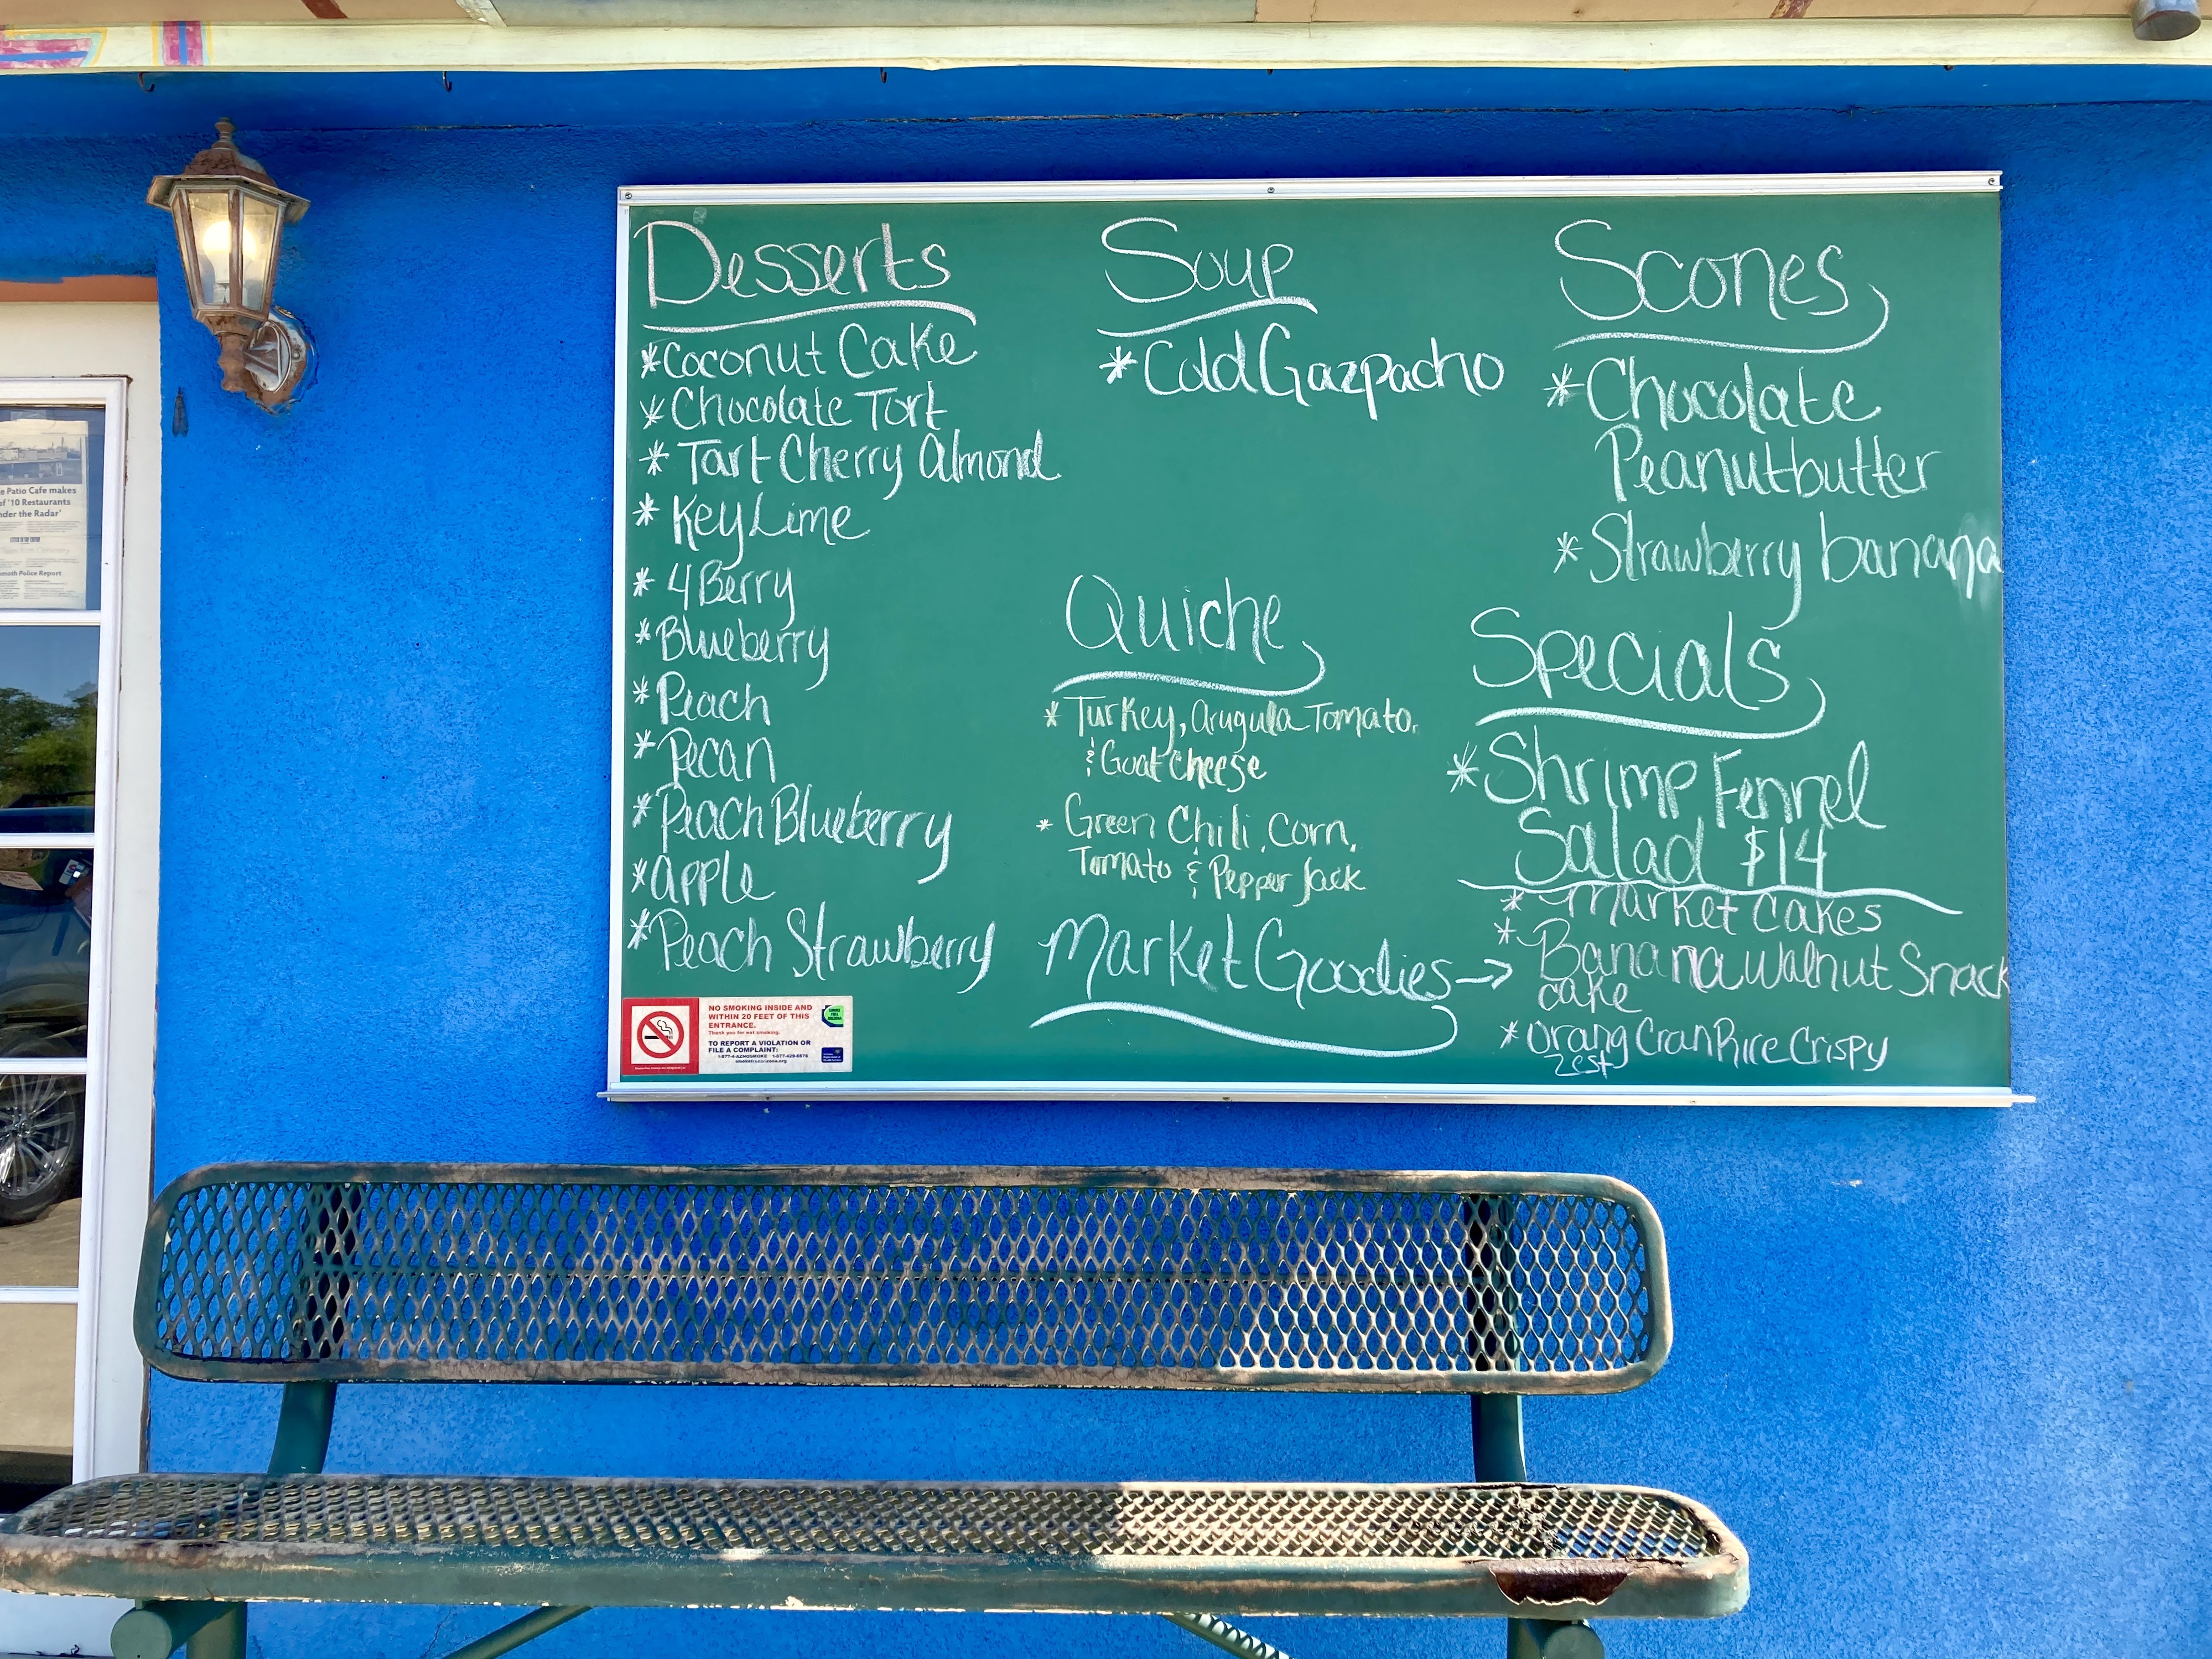 Desserts
*Coconut Cake
*Chocolate Tort
* Tart Cherry Almond
* Key Lime
* 4 Berry
*Blueberry
*Peach
*Pecan
*Peach Blueberry
*apple
*Peach Strawberry
Soup
*Cold Gazpacho
Quiche
* Turkey, Arugula Tomato,
& Goat Cheese
* Green Chili, Corn,
Tomato & Pepper Jack
Market Goodies →
Scones
*Chocolate
Peanutbutter
*Strawberry banana
Specials
*Shrimp Fennel
Salad $14
* Market Cakes
* Banana Walnut Snack
cake
*Orang Cran Rice Crispy
Zest
NO SMOKING INSIDE AND
WITHIN 20 FEET OF THIS
ENTRANCE.
Thank you for not smoking.
TO REPORT A VIOLATION OR
FILE A COMPLAINT:
e Patio Cafe makes
of '10 Restaurants
nder the Radar'
moth Police Report